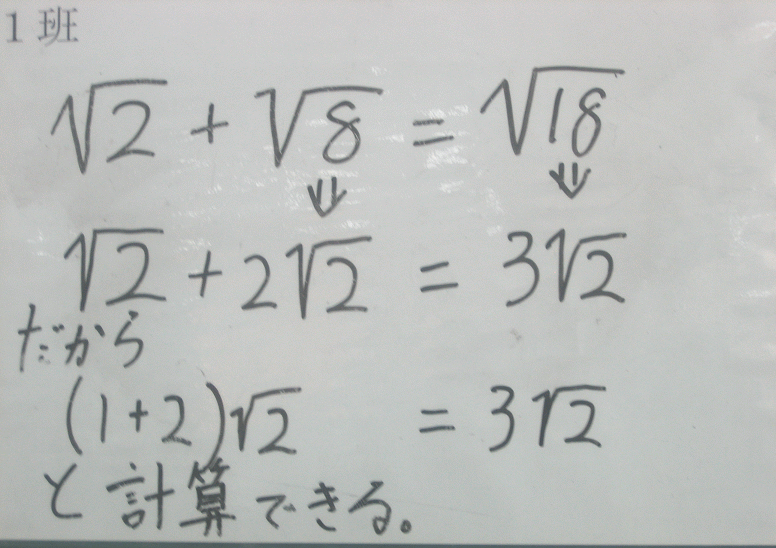 1班
√2 + √8 = √18
⇓ ⇓
√2 + 2√2 = 3√2
だから
(1+2)√2 = 3√2
と計算できる。